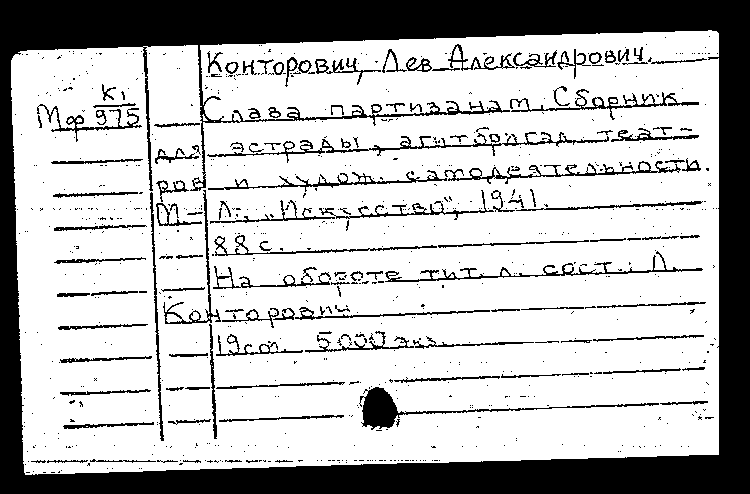 Конторович, Лев Александрович.
К1
Мф 975
Слава партизанам. Сборник
для эстрады, агитбригад, теат-
ров и худож. самодеятельности.
М.-Л., „Искусство", 1941.
88 с.
На обороте тит. л. сост.: Л.
Конторович
19 см. 5000 экз.